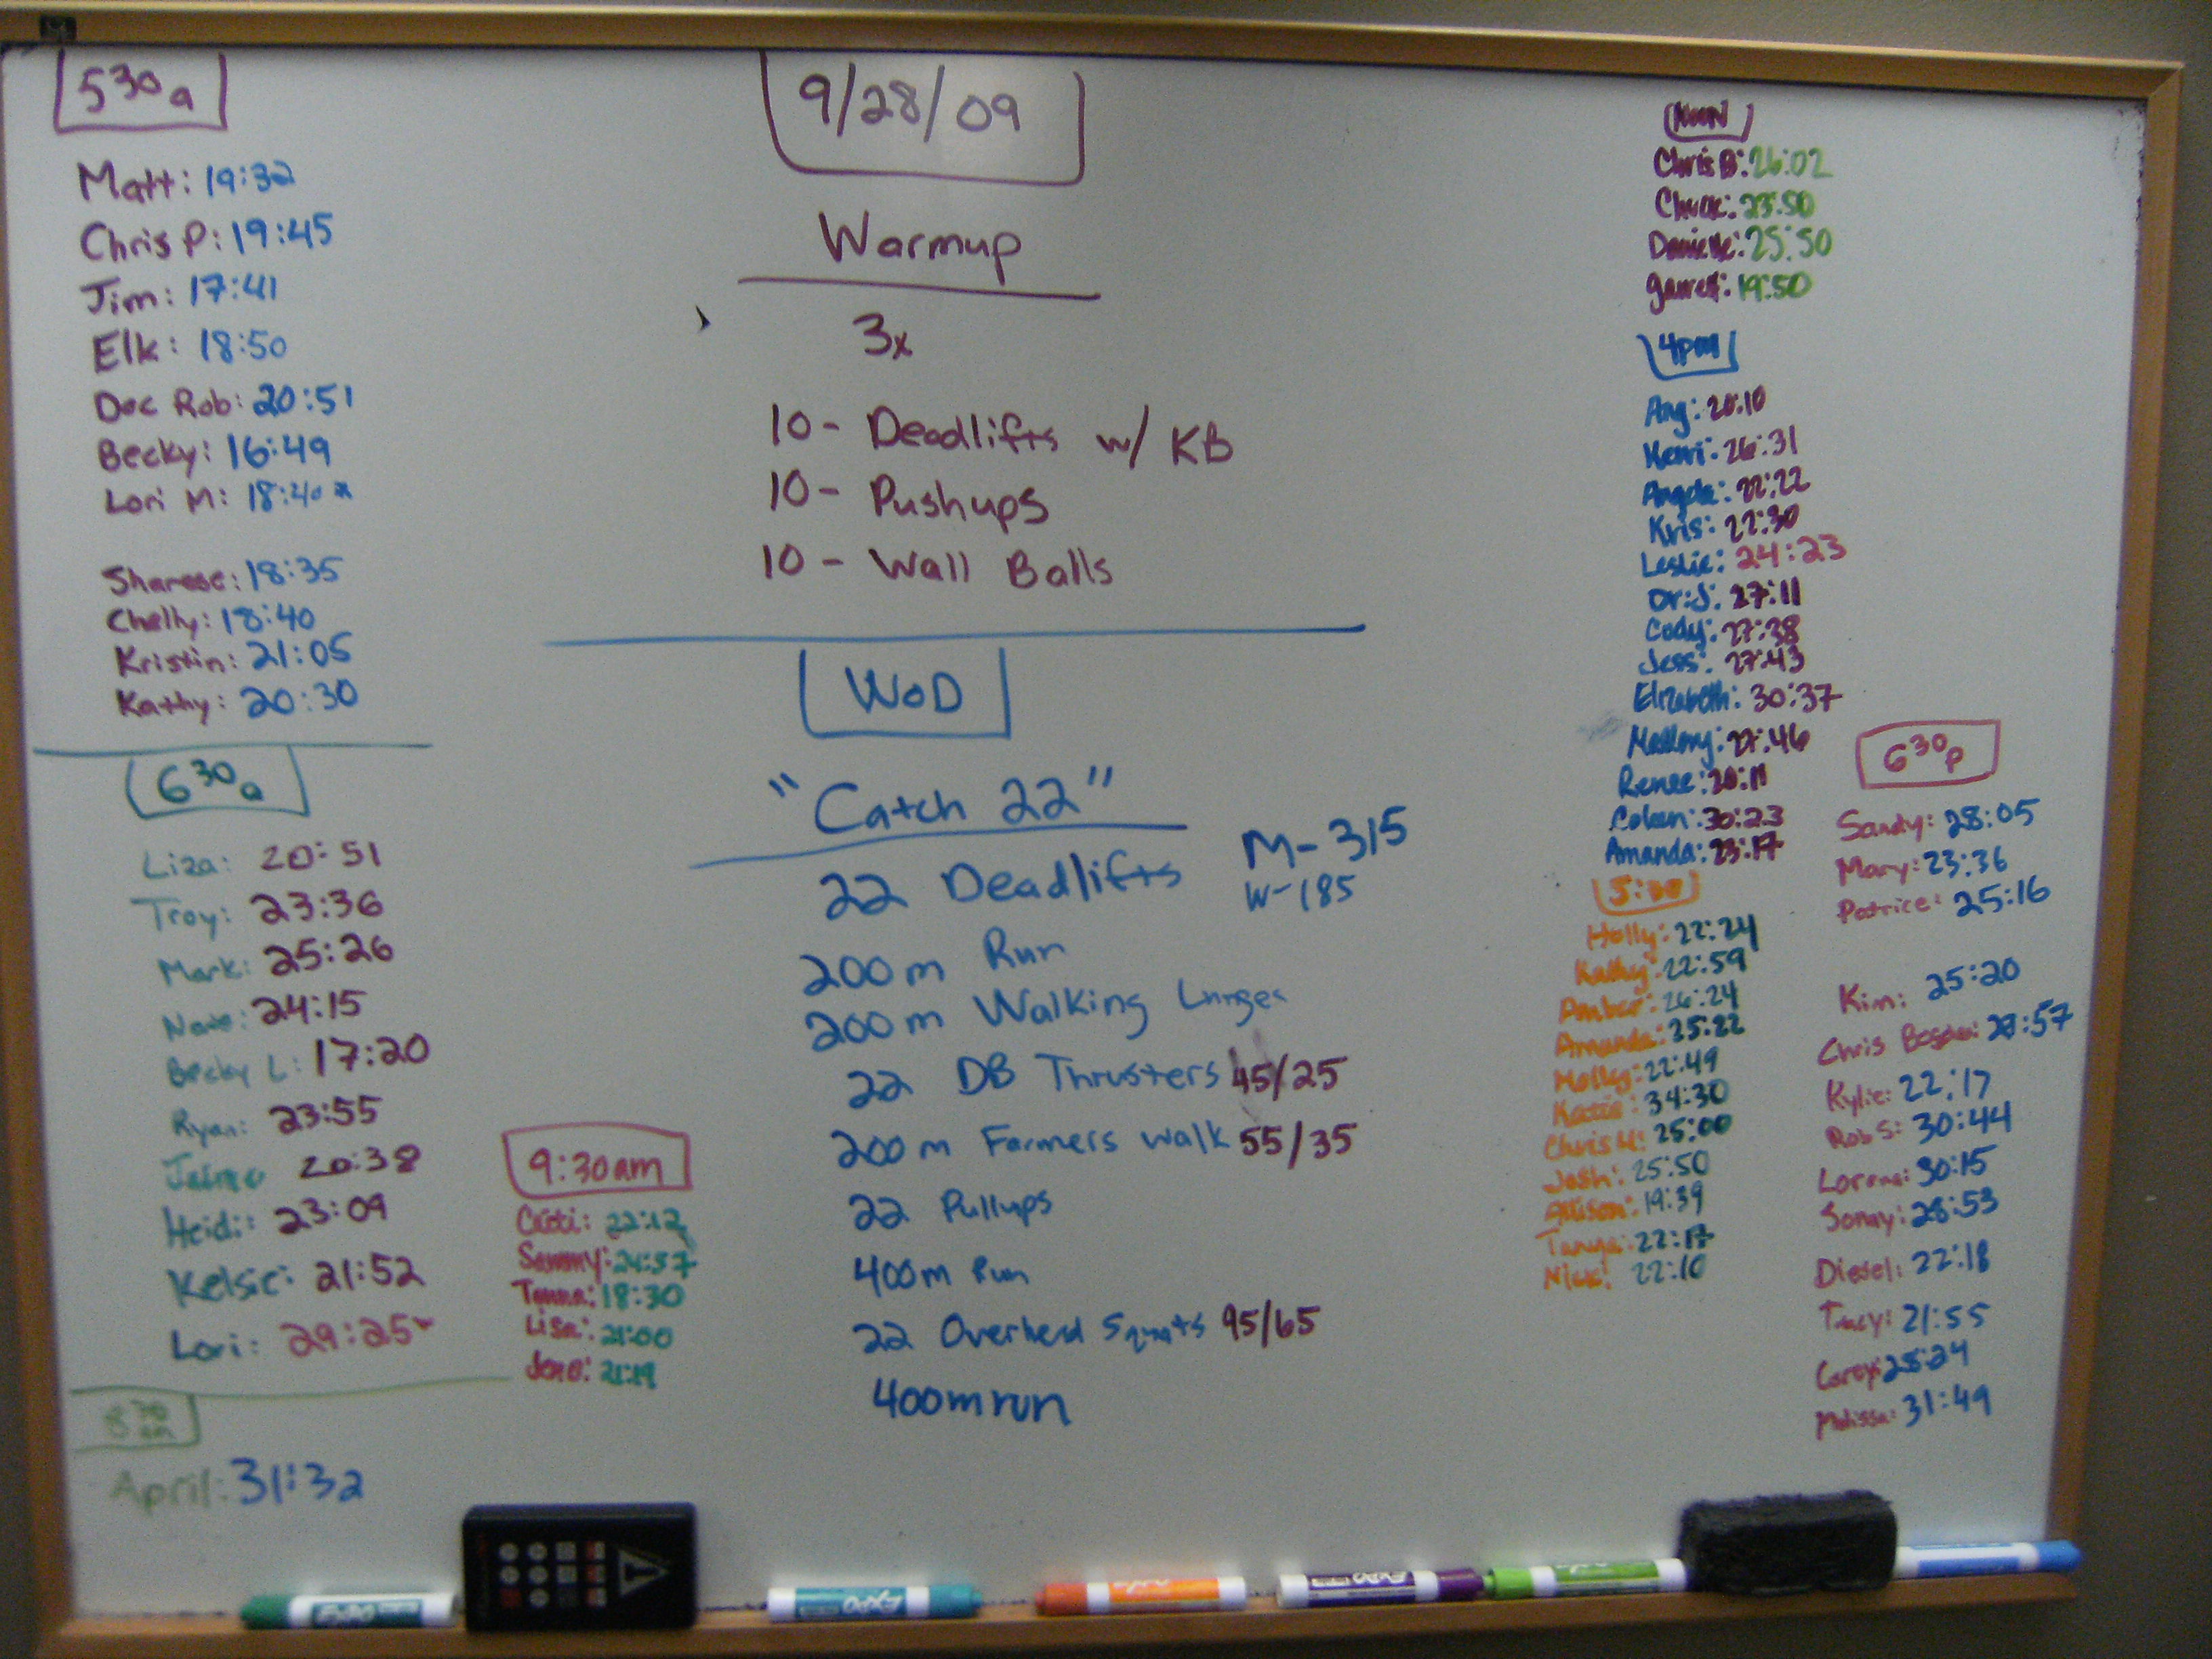 5 30 a
Matt: 19:32
Chris P: 19:45
Jim: 17:41
Elk: 18:50
Doc Rob: 20:51
Becky: 16:49
Lori M: 18:40 *
Sharese: 18:35
Chelly: 18:40
Kristin: 21:05
Kathy: 20:30
6 30 a
Liza: 20:51
Troy: 23:36
Mark: 25:26
Nate: 24:15
Becky L: 17:20
Ryan: 23:55
20:38
Heidi: 23:09
Kelsie: 21:52
Lori: 29:25
8 30 am
April: 31:32
9:30am
22:12
Sammy: 24:57
18:30
Lisa: 21:00
21:19
9/28/09
Warmup
3x
10- Deadlifts w/ KB
10- Pushups
10- Wall Balls
WOD
"Catch 22"
22 Deadlifts M-315
W-185
200m Run
200m Walking Lunges
22 DB Thrusters 45/25
200m Farmers Walk 55/35
22 Pullups
400m Run
22 Overhead Squats 95/65
400m run
Noon
Chris B: 26:02
Chuck: 23:50
Danielle: 25:50
Garrett: 19:50
4pm
Ang:
26:31
Angela: 22:22
Kris: 22:30
Leslie: 24:23
Dr. J: 27:11
Cody: 27:38
Jess: 27:43
Elizabeth: 30:37
Mallory: 27:46
Renee:
30:23
Amanda: 23:17
5:30
Holly: 22:24
Kathy: 22:59
Amber: 26:24
Amanda: 25:22
Molly: 22:49
Katie: 34:30
Chris H: 25:00
Josh: 25:50
Allison: 19:39
Tanya: 22:17
Nick: 22:10
6 30 p
Sandy: 28:05
Mary: 23:36
Patrice: 25:16
Kim: 25:20
Chris
Kylie: 22:17
Rob S: 30:44
30:15
28:53
Diesel: 22:18
Tracy: 21:55
Corey:
Melissa: 31:49
EXPO